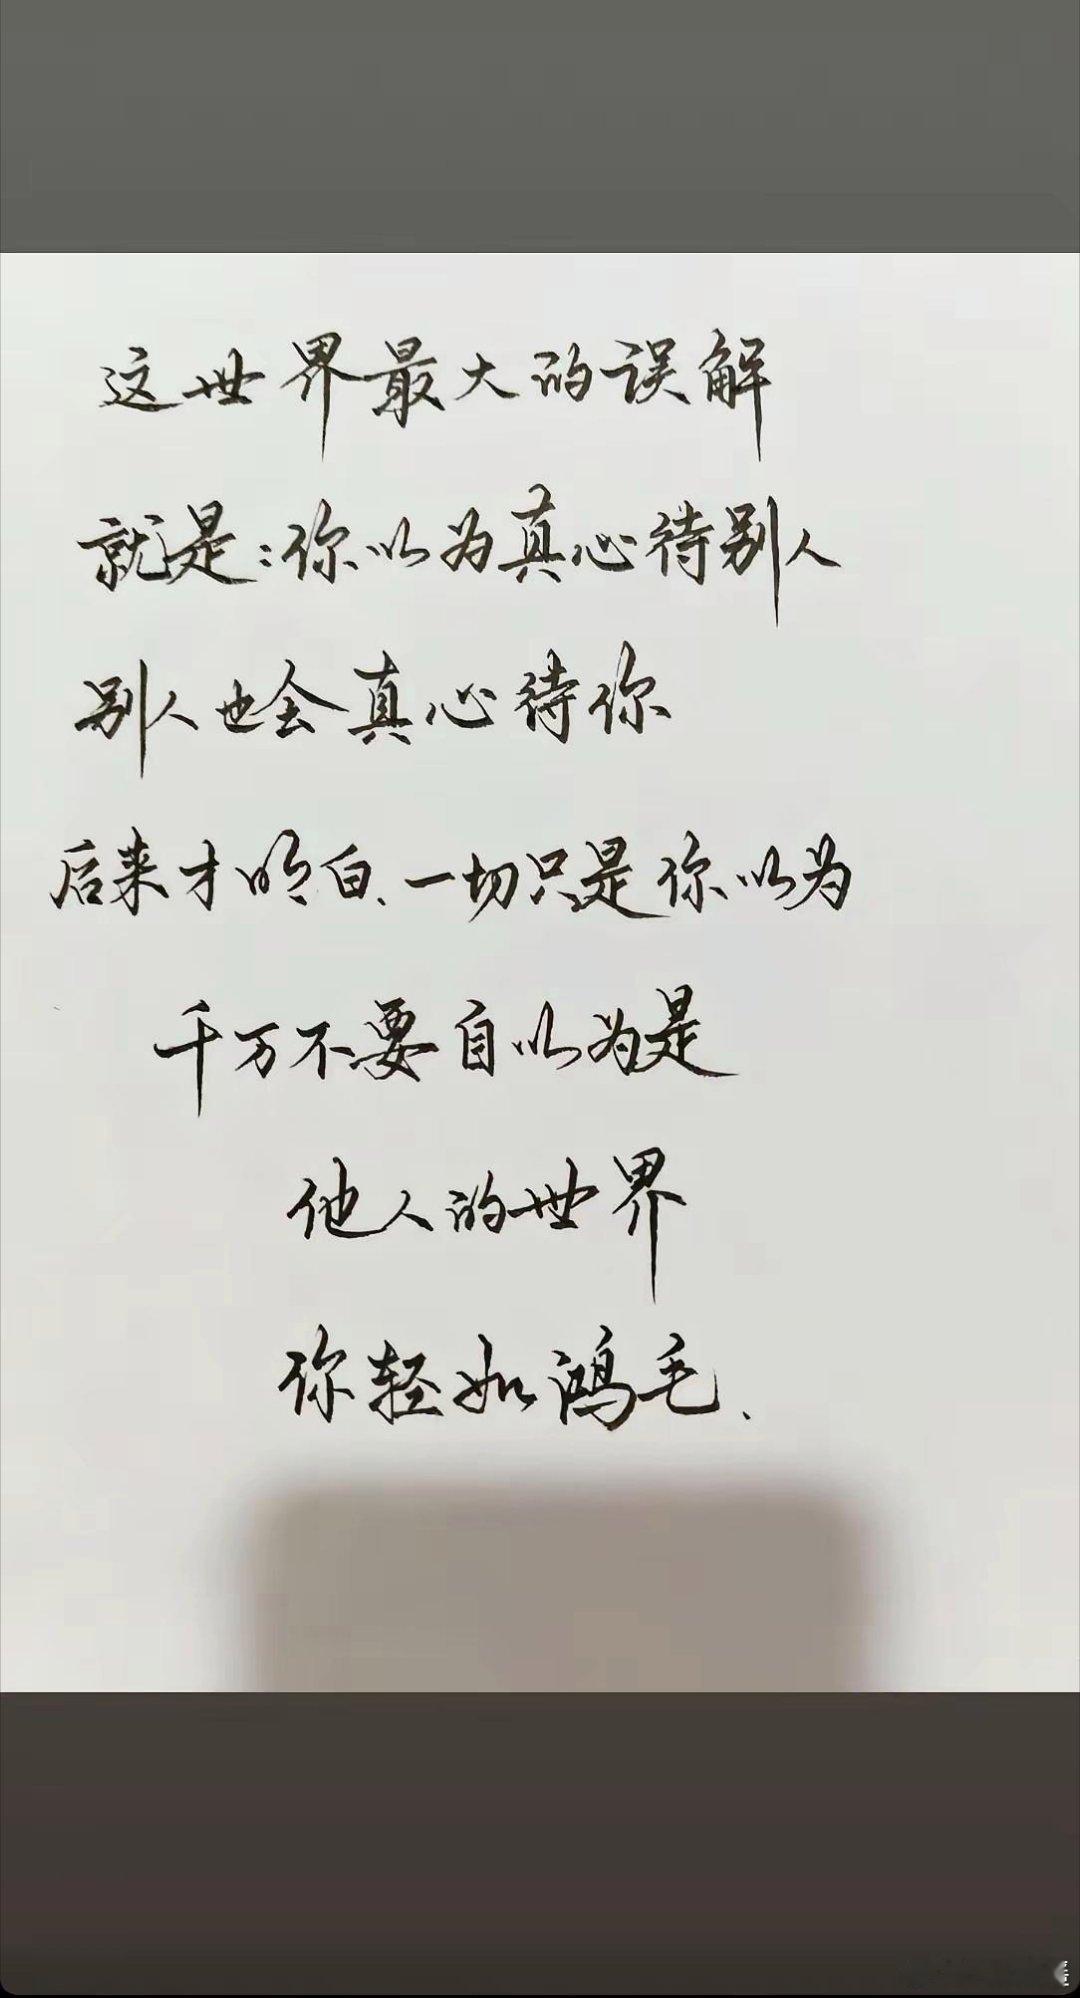 这世界最大的误解
就是:你以为真心待别人
别人也会真心待你
后来才明白、一切只是你以为
千万不要自以为是
他人的世界
你轻如鸿毛、